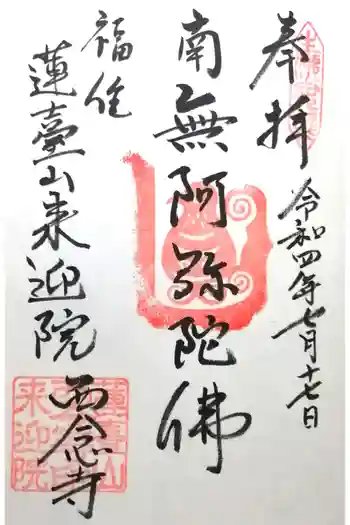 奉拝
令和四年七月十七日
南無阿弥陀佛
福住
蓮臺山来迎院
西念寺
蓮臺山
来迎院